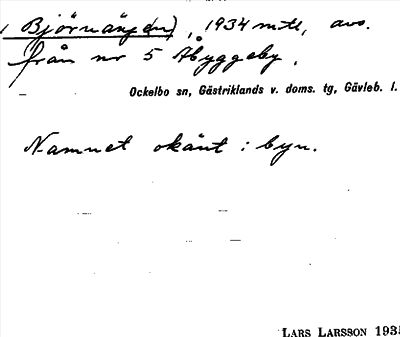 Björnängen), 1934 mtl, avs.
från nr 5 Åbyggeby.
Ockelbo sn, Gästriklands v. doms. tg, Gävleb. l.
Namnet okänt i byn.
LARS LARSSON 1935